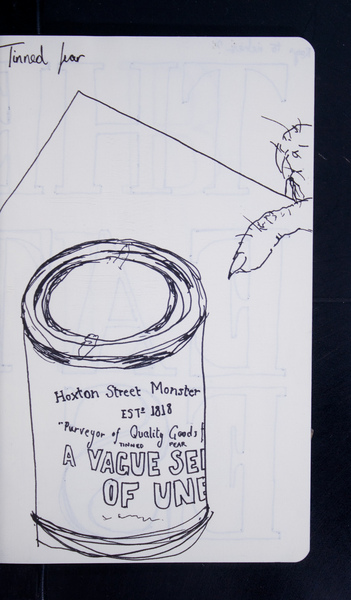 Tinned fear
Hoxton Street Monster
ESTD 1818
"Purveyor of Quality Goods f
TINNED FEAR
A VAGUE SEN
OF UNE